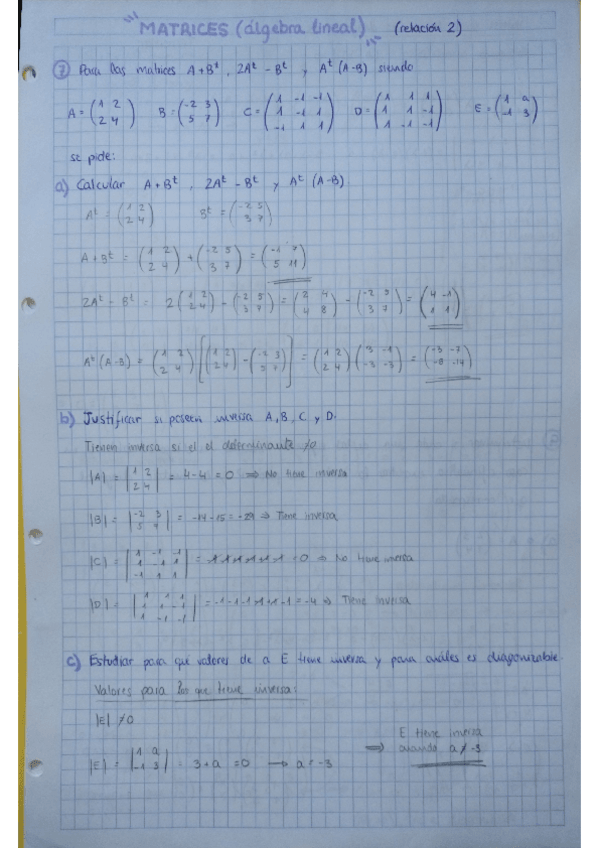 MATRICES (álgebra lineal) (relación 2)
⑦ Para las matrices A+Bᵗ, 2Aᵗ - Bᵗ y Aᵗ (A-B) siendo
A = (1 2 / 2 4) B = (-2 3 / 5 7) C = (1 -1 -1 / 1 -1 1 / -1 1 1) D = (1 1 1 / 1 1 -1 / 1 -1 -1) E = (1 a / -1 3)
se pide:
a) Calcular A+Bᵗ, 2Aᵗ - Bᵗ y Aᵗ (A-B)
Aᵗ = (1 2 / 2 4) Bᵗ = (-2 5 / 3 7)
A+Bᵗ = (1 2 / 2 4) + (-2 5 / 3 7) = (-1 7 / 5 11)
2Aᵗ - Bᵗ = 2 (1 2 / 2 4) - (-2 5 / 3 7) = (2 4 / 4 8) - (-2 5 / 3 7) = (4 -1 / 1 1)
Aᵗ (A-B) = (1 2 / 2 4) [(1 2 / 2 4) - (-2 3 / 5 7)] = (1 2 / 2 4) (3 -1 / -3 -3) = (-3 -7 / -8 -14)
b) Justificar si poseen inversa A, B, C y D.
Tienen inversa si el el determinante ≠0
|A| = |1 2 / 2 4| = 4-4 = 0 ⇒ No tiene inversa
|B| = |-2 3 / 5 7| = -14-15 = -29 ⇒ Tiene inversa
|C| = |1 -1 -1 / 1 -1 1 / -1 1 1| = 0 ⇒ No tiene inversa
|D| = |1 1 1 / 1 1 -1 / 1 -1 -1| = -1-1-1-1+1-1 = -4 ⇒ Tiene inversa
c) Estudiar para qué valores de a E tiene inversa y para cuáles es diagonizable.
Valores para los que tiene inversa:
|E| ≠0
|E| = |1 a / -1 3| = 3+a = 0 → a = -3
⇒ E tiene inversa
cuando a ≠ -3